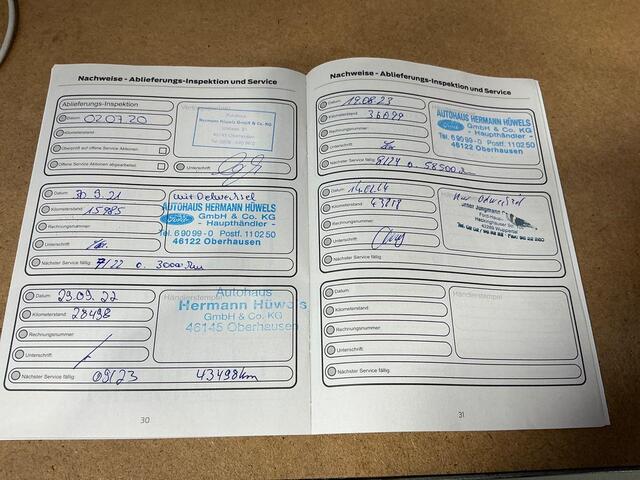 Nachweise - Ablieferungs-Inspektion und Service
Ablieferungs-Inspektion
Datum: 02.07.20
Kilometerstand
Überprüft auf offene Service Aktionen
Offene Service Aktionen abgearbeitet
Unterschrift:
Hermann Hüwels GmbH & Co. KG
Datum: 9.21
Kilometerstand: 15985
Rechnungsnummer:
Unterschrift:
Nächster Service fällig: 7/22 o. 30000 km
mit Oelwechsel
AUTOHAUS HERMANN HÜWELS
Ford
GmbH & Co. KG
- Haupthändler -
Tel. 6 90 99 - 0 Postf. 11 02 50
46122 Oberhausen
Datum: 29.09.22
Kilometerstand: 28498
Rechnungsnummer:
Unterschrift:
Nächster Service fällig: 09/23 43498km
Händlerstempel
Autohaus
Hermann Hüwels
GmbH & Co. KG
46145 Oberhausen
30
Nachweise - Ablieferungs-Inspektion und Service
Datum: 19.08.23
Kilometerstand:
Rechnungsnummer:
Unterschrift:
Nächster Service fällig: 8/24 o. 58500
AUTOHAUS HERMANN HÜWELS
Ford
GmbH & Co. KG
- Haupthändler -
Tel. 6 90 99 - 0 Postf. 11 02 50
46122 Oberhausen
Datum:
Kilometerstand:
Rechnungsnummer:
Unterschrift
Nächster Service fällig:
42289 Wuppertal
Datum:
Kilometerstand:
Rechnungsnummer:
Unterschrift:
Nächster Service fällig:
Händlerstempel
31